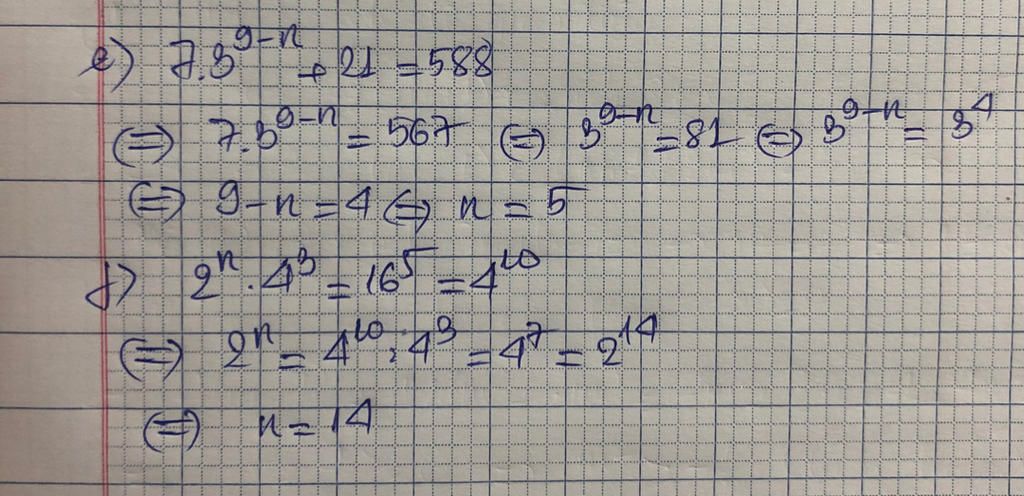 e) 7.3^{9-n} + 21 = 588
(=) 7.3^{9-n} = 567 (=) 3^{9-n} = 81 (=) 3^{9-n} = 3^4
(=) 9-n = 4 (=) n = 5
f) 2^n . 4^3 = 16^5 = 4^{10}
(=) 2^n = 4^{10} : 4^3 = 4^7 = 2^{14}
(=) n = 14